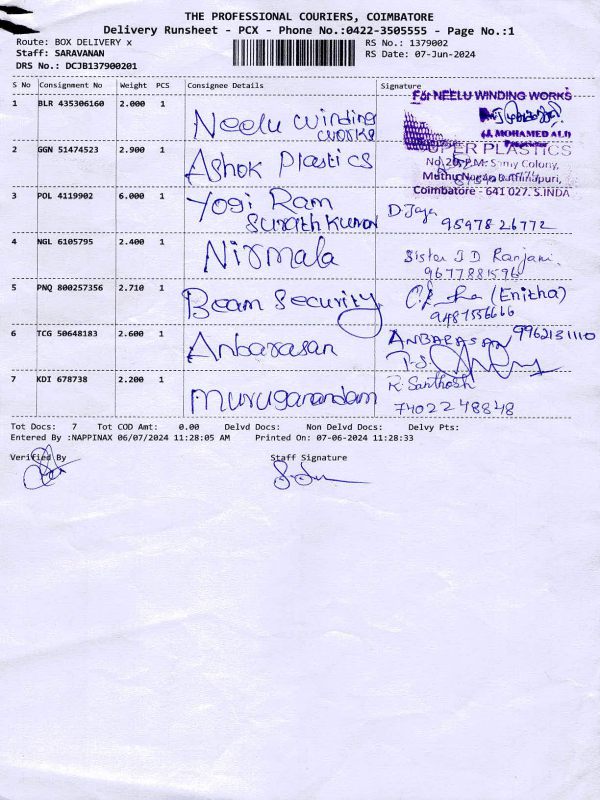 THE PROFESSIONAL COURIERS, COIMBATORE
Delivery Runsheet - PCX - Phone No.:0422-3505555 - Page No.:1
Route: BOX DELIVERY x
RS No.: 1379002
Staff: SARAVANAN
RS Date: 07-Jun-2024
DRS No.: DCJB137900201
S No Consignment No Weight PCS Consignee Details Signature
1 BLR 435306160 2.000 1 Neelu winding works
For NEELU WINDING WORKS
(J. MOHAMED ALI)
Proprietor
2 GGN 51474523 2.900 1 Ashok Plastics
SUPER PLASTICS
Colony,
Coimbatore - 641 027. S.INDIA
3 POL 4119902 6.000 1 Yogi Ram
D. Jaya
95978 26772
4 NGL 6105795 2.400 1 Nirmala
Sister J D Ranjani
9677881596
5 PNQ 800257356 2.710 1 Beam Security
(Enitha)
9487556666
6 TCG 50648183 2.600 1 Anbarasan
ANBARASAN 9962131110
7 KDI 678738 2.200 1 Muruganandam
R. Santhosh
7402248848
Tot Docs: 7 Tot COD Amt: 0.00 Delvd Docs: Non Delvd Docs: Delvy Pts:
Entered By :NAPPINAX 06/07/2024 11:28:05 AM Printed On: 07-06-2024 11:28:33
Verified By Staff Signature